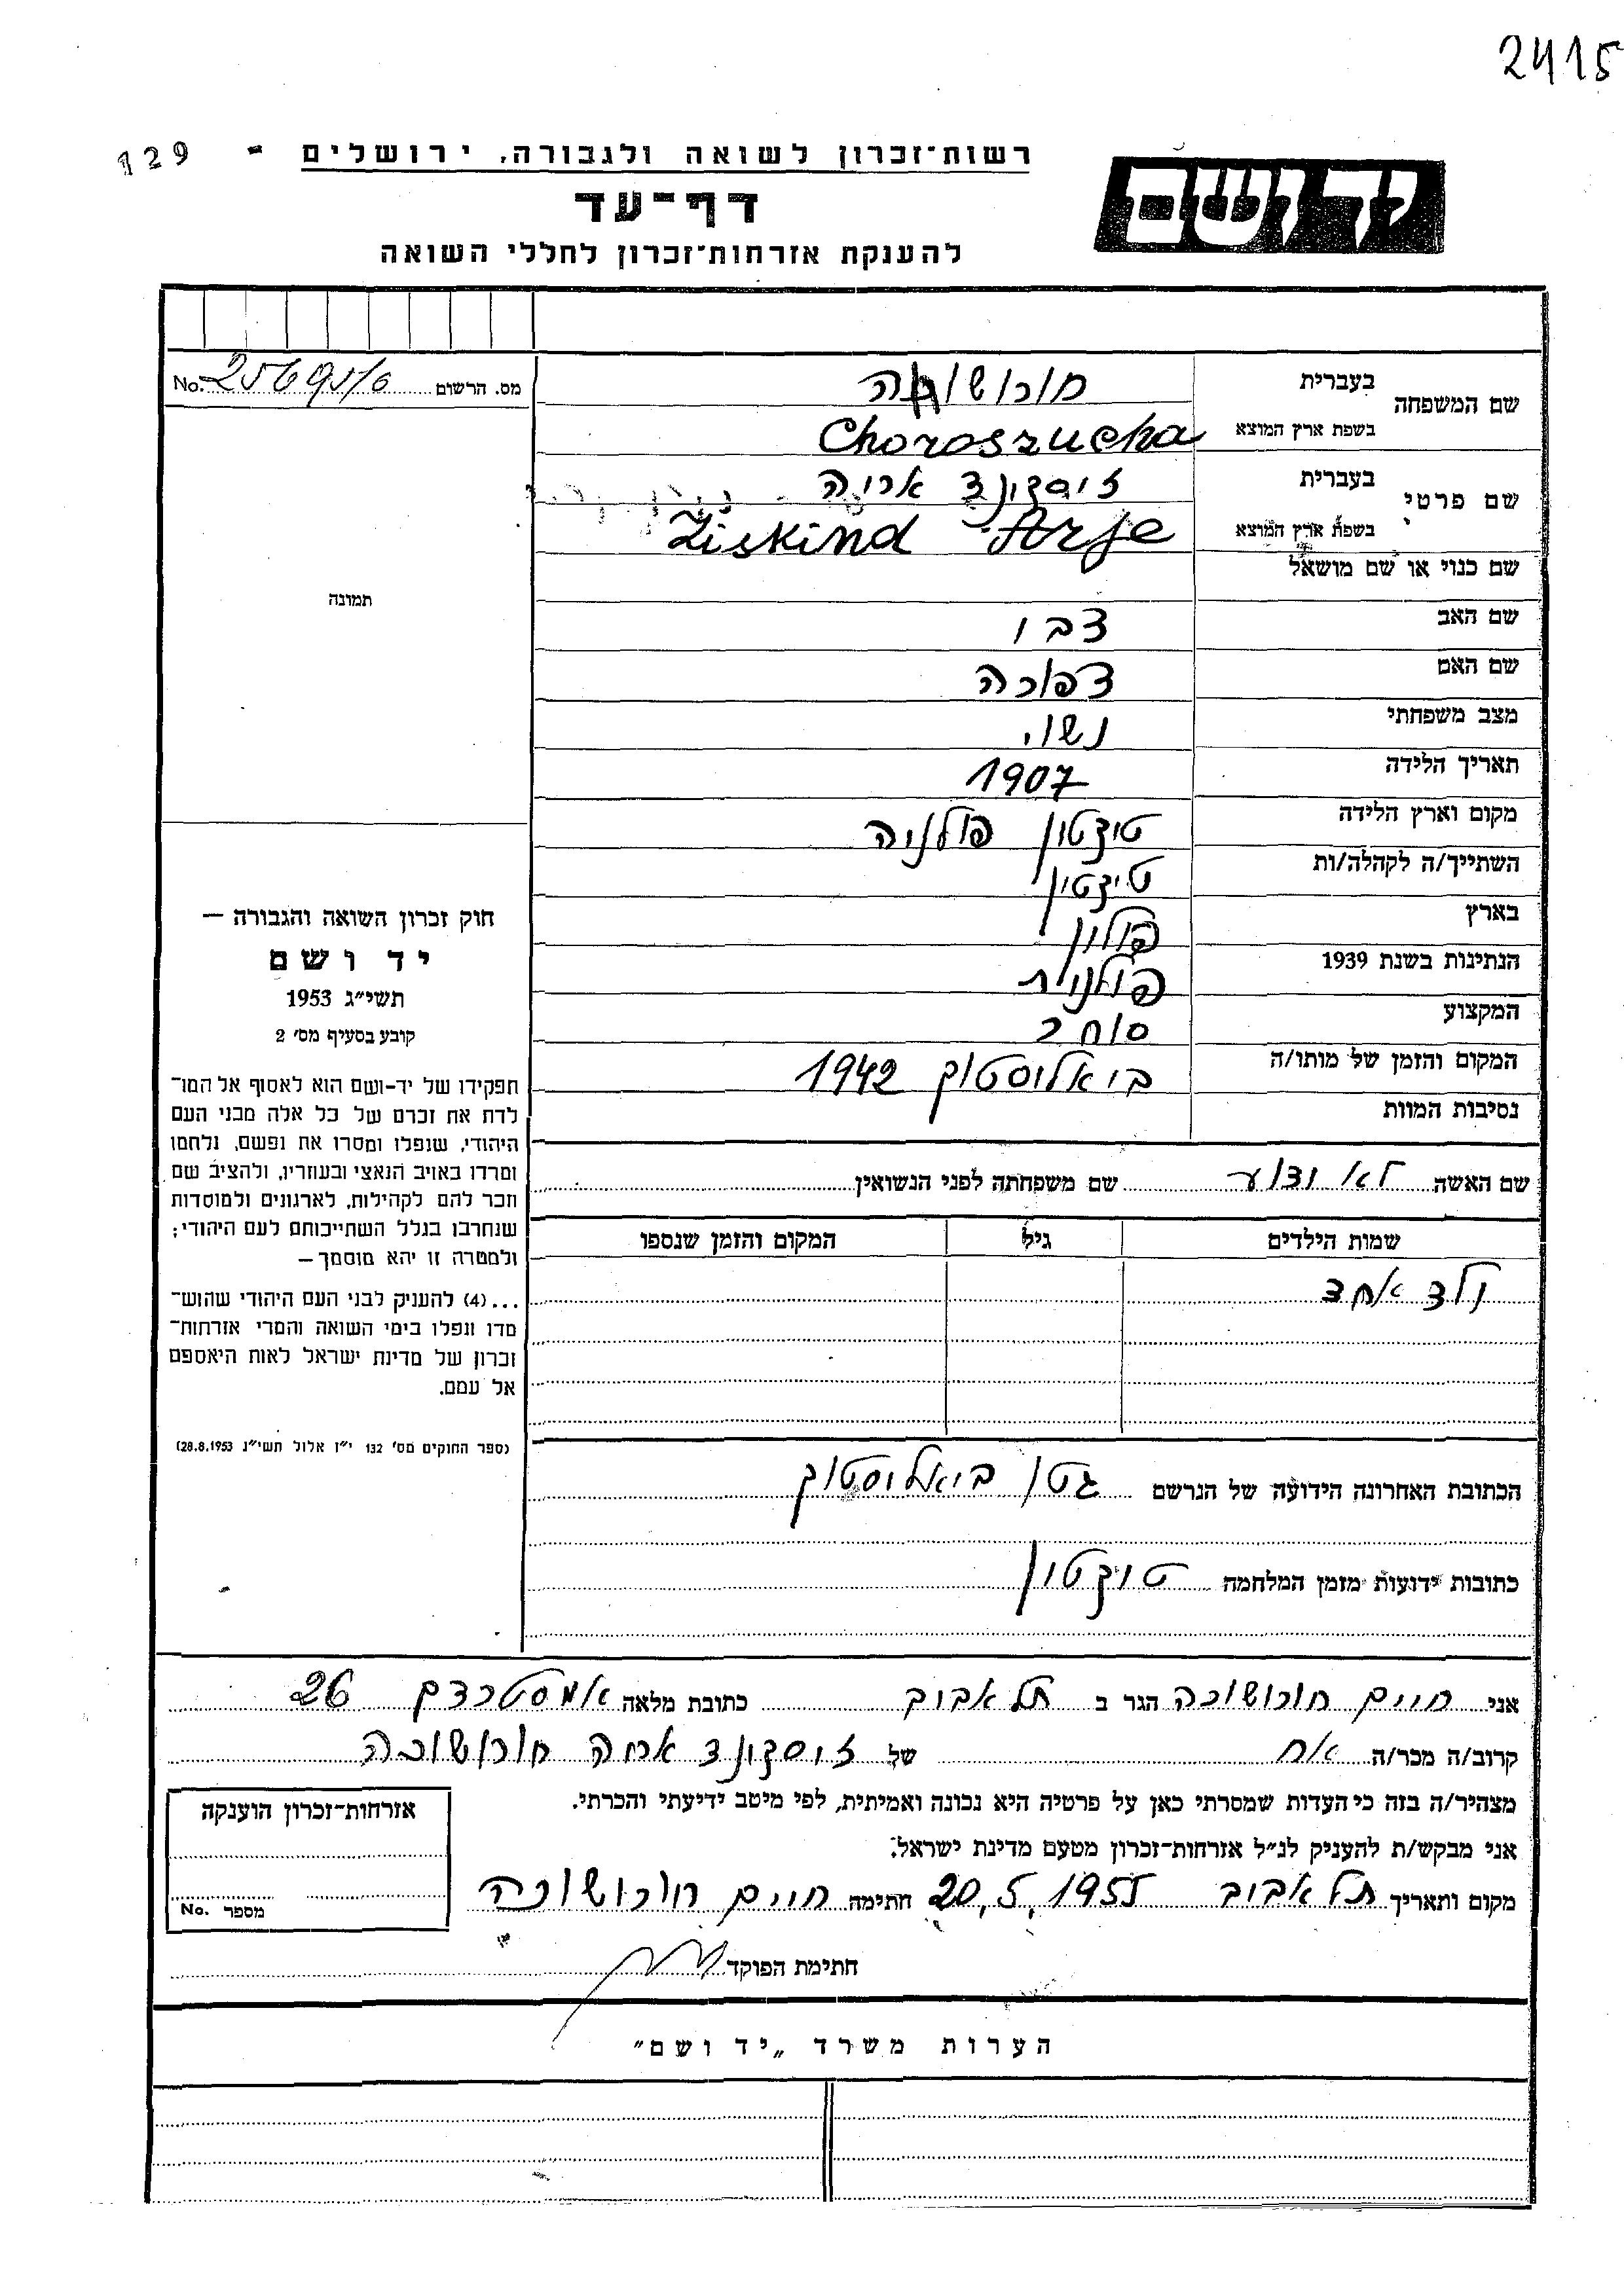 2415
129 - רשות־זכרון לשואה ולגבורה, ירושלים
יד ושם
דף־עד
להענקת אזרחות־זכרון לחללי השואה
מס. הרשום No.
שם המשפחה
בעברית
בשפת ארץ המוצא Choroszucha
שם פרטי
בעברית זיסקינד אריה
בשפת ארץ המוצא Ziskind Arje
שם כנוי או שם מושאל
תמונה
שם האב צבי
שם האם צפורה
מצב משפחתי נשוי
תאריך הלידה 1907
מקום וארץ הלידה טיקטין פולניה
השתייך/ה לקהלה/ות טיקטין
בארץ פולין
הנתינות בשנת 1939 פולנית
המקצוע סוחר
המקום והזמן של מותו/ה ביאליסטוק 1942
נסיבות המוות
חוק זכרון השואה והגבורה —
יד ושם
תשי״ג 1953
קובע בסעיף מס׳ 2
תפקידו של יד-ושם הוא לאסוף אל המו־
לדת את זכרם של כל אלה מבני העם
היהודי, שנפלו ומסרו את נפשם, נלחמו
ומרדו באויב הנאצי ובעוזריו, ולהציב שם
וזכר להם לקהילות, לארגונים ולמוסדות
שנחרבו בגלל השתייכותם לעם היהודי;
ולמטרה זו יהא מוסמך—
...(4) להעניק לבני העם היהודי שהוש־
מדו ונפלו בימי השואה והמרי אזרחות־
זכרון של מדינת ישראל לאות היאספם
אל עמם.
(ספר החוקים מס׳ 132 י״ז אלול תשי״ג 28.8.1953)
שם האשה לא ידוע שם משפחתה לפני הנשואין
שמות הילדים גיל המקום והזמן שנספו
ילד אחד
הכתובת האחרונה הידועה של הנרשם גטו ביאליסטוק
כתובות ידועות מזמן המלחמה טיקטין
אני חיים חורושוכה הגר ב תל אביב כתובת מלאה אמסטרדם 26
קרוב/ה מכר/ה אח של זיסקינד אריה חורושוכה
מצהיר/ה בזה כי העדות שמסרתי כאן על פרטיה היא נכונה ואמיתית, לפי מיטב ידיעתי והכרתי.
אני מבקש/ת להעניק לנ״ל אזרחות־זכרון מטעם מדינת ישראל.
מקום ותאריך תל אביב 20.5.1955 חתימה חיים חורושוכה
אזרחות־זכרון הוענקה
מספר No.
חתימת הפוקד
הערות משרד „יד ושם״